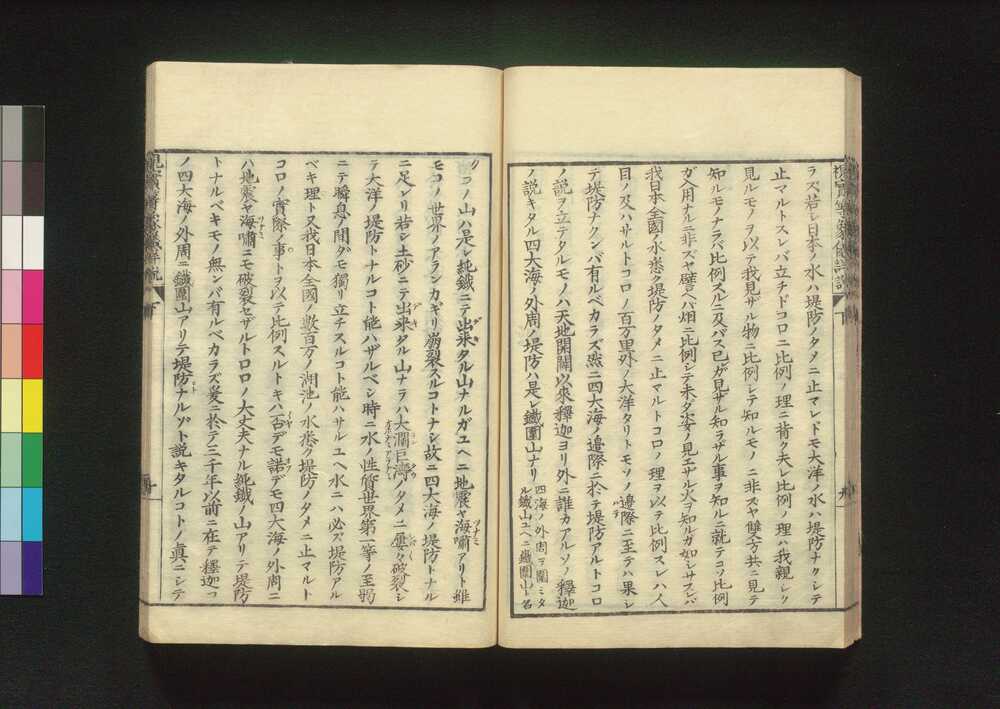 ラズ若シ日本ノ水ハ堤防ノタメニ止マレドモ大洋ノ水ハ堤防ナクシテ
止マルトスレバ立チドコロニ比例ノ理ニ背ク夫レ比例ノ理ハ我親シク
見ルモノヲ以テ我見ザル物ニ比例シテ知ルモノニ非スヤ雙方共ニ見テ
知ルモノナラバ比例スルニ及バス已ガ見ザル知ラザル事ヲ知ルニ就テコソ比例
ガ入用ナルニ非ズヤ譬ヘバ烟ニ比例シテ未ダ姿ノ見エザル火ヲ知ルガ如シサスレバ
我日本全國ノ水悉ク堤防ノタメニ止マルトコロノ理ヲ以テ比例スレハ人
目ノ及ハサルトコロノ百万里外ノ大洋タリトモソノ邊際ニ至テハ果シ
テ堤防ナクンバ有ルベカラズ然ニ四大海ノ邊際ニ於テ堤防アルトコロ
ノ説ヲ立テタルモノハ天地開闢以來釋迦ヨリ外ニ誰カアルソノ釋迦
ノ説キタル四大海ノ外周ノ堤防ハ是レ鐵圍山ナリ 四海ノ外周ヲ圍ミタル鐵山ユヘニ鐵圍山ト名
ク コノ山ハ是レ純鐵ニテ出來タル山ナルガユヘニ地震ヤ海嘯アリト雖
モコノ世界ノアランカギリ崩裂スルコトナシ故ニ四大海ノ堤防トナル
ニ足レリ若シ土砂ニテ出來タル山ナラハ大瀾巨濤ノタメニ屢々破裂シ
テ大洋ノ堤防トナルコト能ハザルベシ時ニ水ノ性質世界第一等ノ至弱
ニテ瞬息ノ間ダモ獨リ立チスルコト能ハサルユヘ水ニハ必ズ堤防アル
ベキ理ト又我日本全國ノ數百万ノ湖池ノ水悉ク堤防ノタメニ止マルト
コロノ實際ノ事トヲ以テ比例スルトキハ否デモ諾デモ四大海ノ外周ニ
ハ地震ヤ海嘯ニモ破裂セザルトコロノ大丈夫ナル純鐵ノ山アリテ堤防
トナルベキモノ無ンバ有ルベカラズ爰ニ於テ三千年以前ニ在テ釋迦コ
ノ四大海ノ外周ニ鐵圍山アリテ堤防ナルゾト説キタルコトノ眞ニシテ